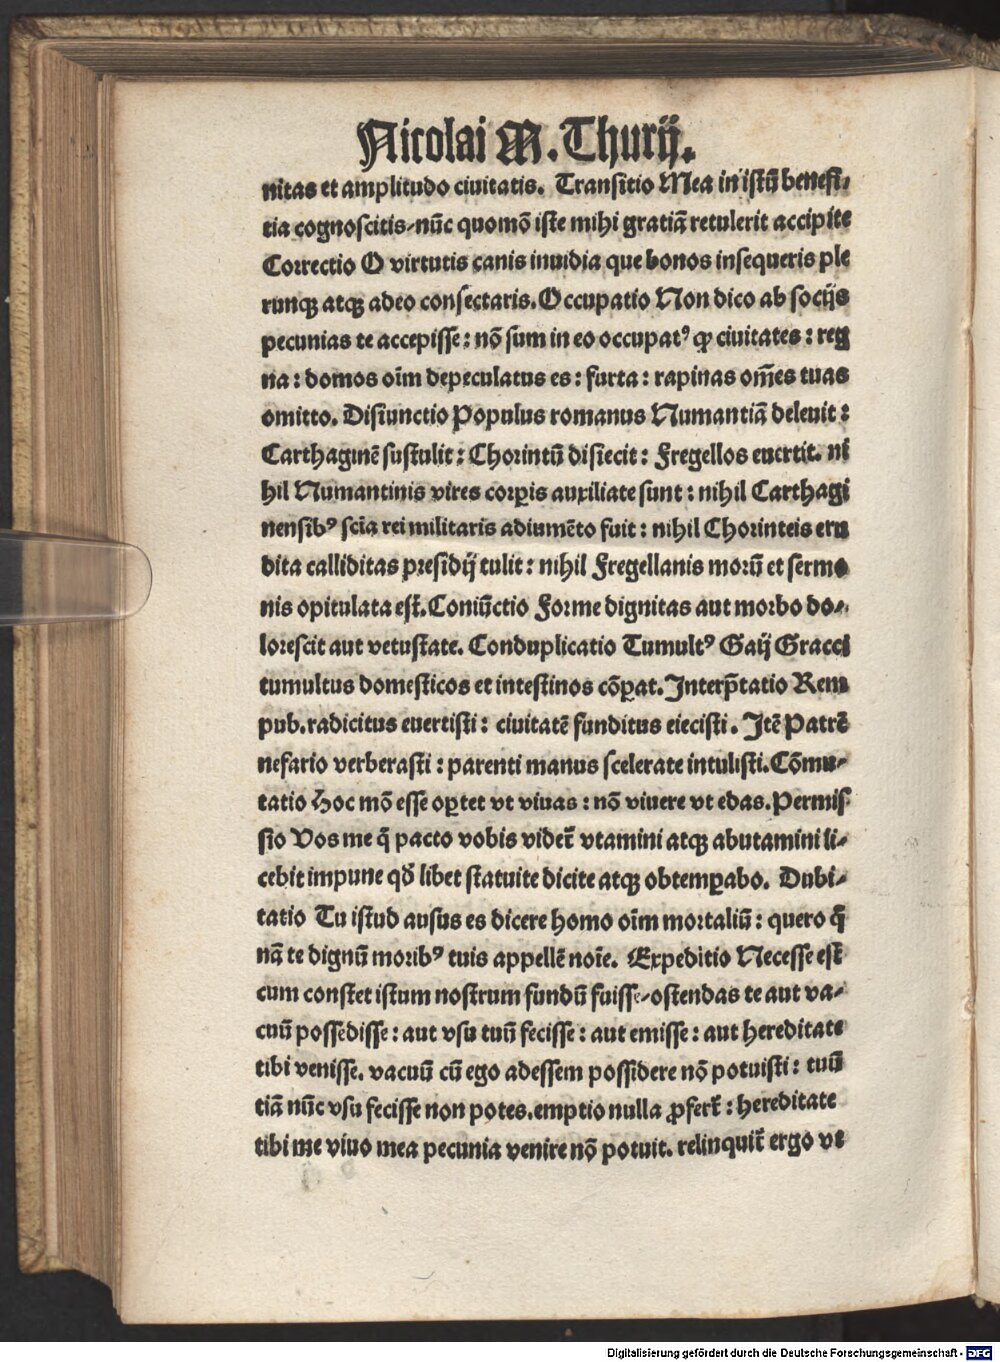 Nicolai M. Thurij.
nitas et amplitudo ciuitatis. Transitio Mea in istū benefi⸗
tia cognoscitis⸗nūc quomō iste mihi gratiā retulerit accipite
Correctio O virtutis canis inuidia que bonos insequeris ple
runqꝫ atqꝫ adeo consectaris. Occupatio Non dico ab socijs
pecunias te accepisse: nō sum in eo occupatꝰ ꝙ ciuitates: reg
na: domos oīm depeculatus es: furta: rapinas om̄es tuas
omitto. Disiunctio Populus romanus Numantiā deleuit:
Carthaginē sustulit: Chorintū disiecit: Fregellos euertit. ni
hil Numantinis vires corꝑis auxiliate sunt: nihil Carthagi
nensibꝰ scīa rei militaris adiumēto fuit: nihil Chorinteis eru
dita calliditas presidij tulit: nihil Fregellanis morū et sermo
nis opitulata est. Coniūctio Forme dignitas aut morbo do⸗
lorescit aut vetustate. Conduplicatio Tumultꝰ Gaij Gracci
tumultus domesticos et intestinos cōꝑat. Interp̄tatio Rem
pub. radicitus euertisti: ciuitatē funditus eiecisti. Itē Patrē
nefario verberasti: parenti manus scelerate intulisti. Cōmu⸗
tatio Hoc mō esse oꝑtet vt viuas: nō viuere vt edas. Permis
sio Vos me q̄ pacto vobis videt̄ vtamini atqꝫ abutamini li⸗
cebit impune qd̄ libet statuite dicite atqꝫ obtemꝑabo. Dubi⸗
tatio Tu istud ausus es dicere homo oīm mortaliū: quero q̄
nā te dignū moribꝰ tuis appellē noīe. Expeditio Necesse est
cum constet istum nostrum fundū fuisse⸗ostendas te aut va⸗
cuū possedisse: aut vsu tuū fecisse: aut emisse: aut hereditate
tibi venisse. vacuū cū ego adessem possidere nō potuisti: tuū
tiā nūc vsu fecisse non potes. emptio nulla ꝓfert̄: hereditate
tibi me viuo mea pecunia venire nō potuit. relinquit̄ ergo vt
Digitalisierung gefördert durch die Deutsche Forschungsgemeinschaft - DFG